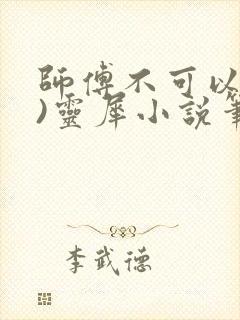 師傅不可以
)靈犀小說筆
李武德